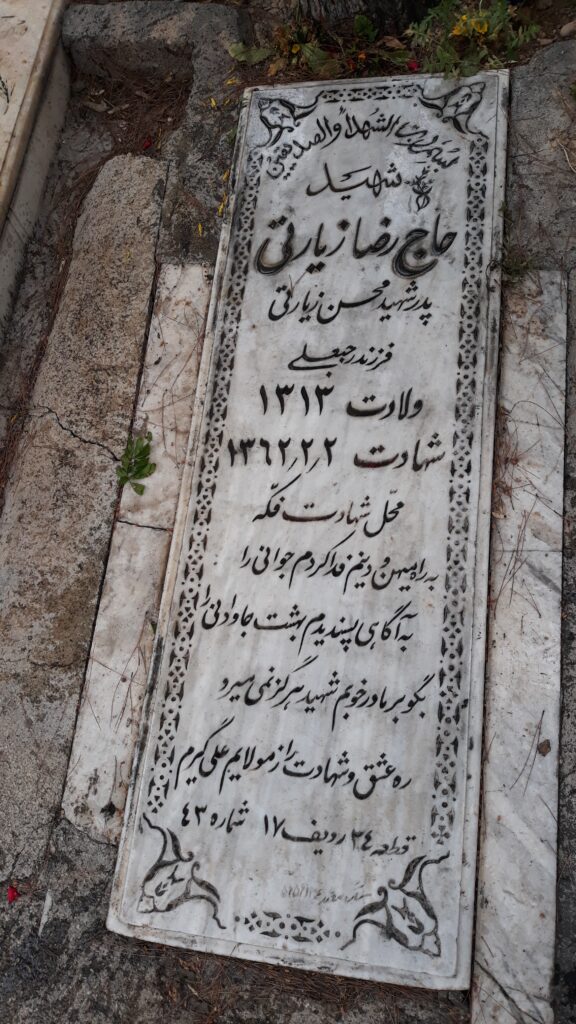 بسم رب الشهداء والصدیقین
شهید
حاج رضا زیارتی
پدر شهید محسن زیارتی
فرزند رجبعلی
ولادت ۱۳۱۳
شهادت ۱۳۶۲٫۲٫۲
محل شهادت فکه
به راه میهن و دینم فدا کردم جوانی را
به آگاهی پسندیدم بهشت جاودانی را
بگو بر مادر خوبم شهید هرگز نمی میرد
ره عشق و شهادت را ز مولایم علی گیرم
قطعه ۳۴ ردیف ۱۷ شماره ۴۳